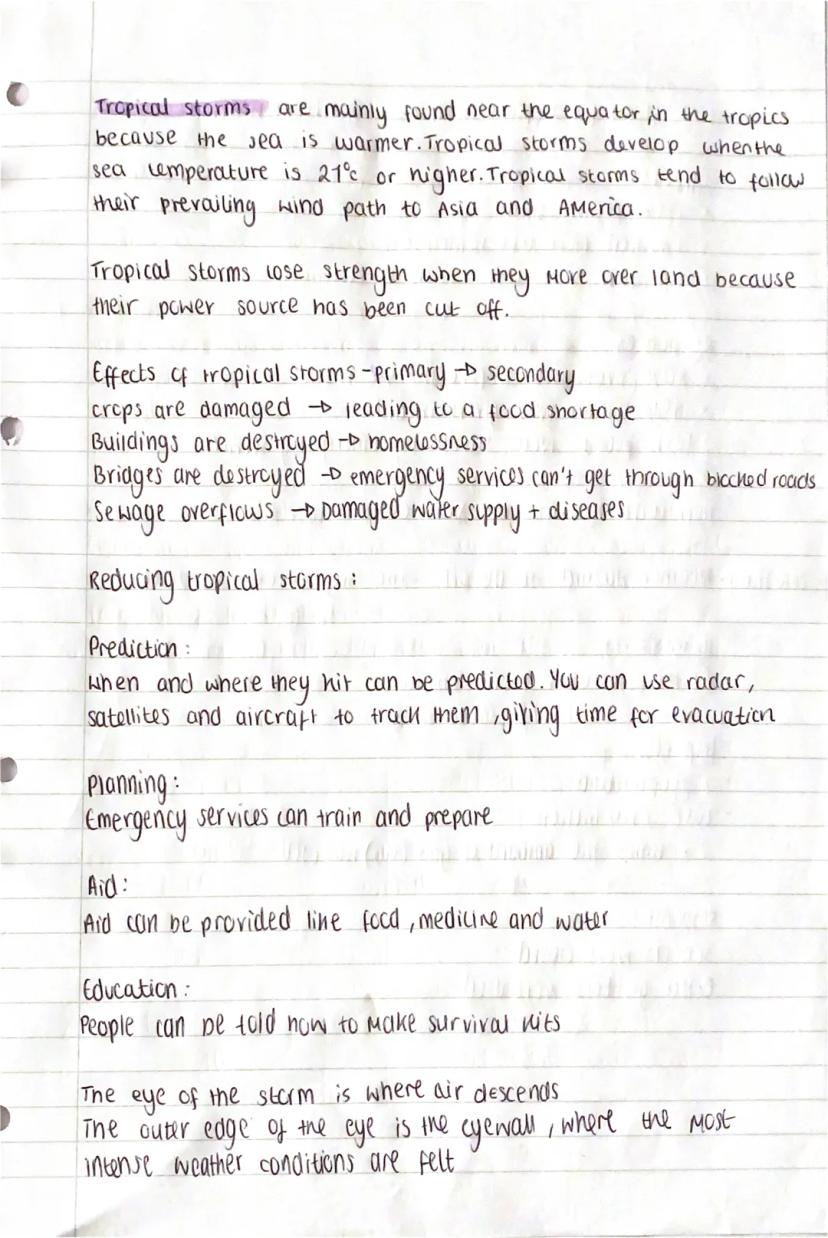 Tropical storms are mainly found near the equator, in the tropics
because the sea is warmer. Tropical storms develop when the
sea temperature is 27°c or higher. Tropical storms tend to follow
their prevailing wind path to Asia and America.
Tropical storms lose strength when they move over land because
their power source has been cut off.
Effects of tropical storms - primary → secondary
crops are damaged → leading to a food shortage
Buildings are destroyed → homelessness
Bridges are destroyed → emergency services can't get through blocked roads
Sewage overflows → Damaged water supply + diseases
Reducing tropical storms :
Prediction :
When and where they hit can be predicted. You can use radar,
satellites and aircraft to track them , giving time for evacuation
Planning :
Emergency services can train and prepare
Aid :
Aid can be provided like food , medicine and water
Education :
People can be told how to make survival kits
The eye of the storm is where air descends
The outer edge of the eye is the eyewall , where the most
intense weather conditions are felt